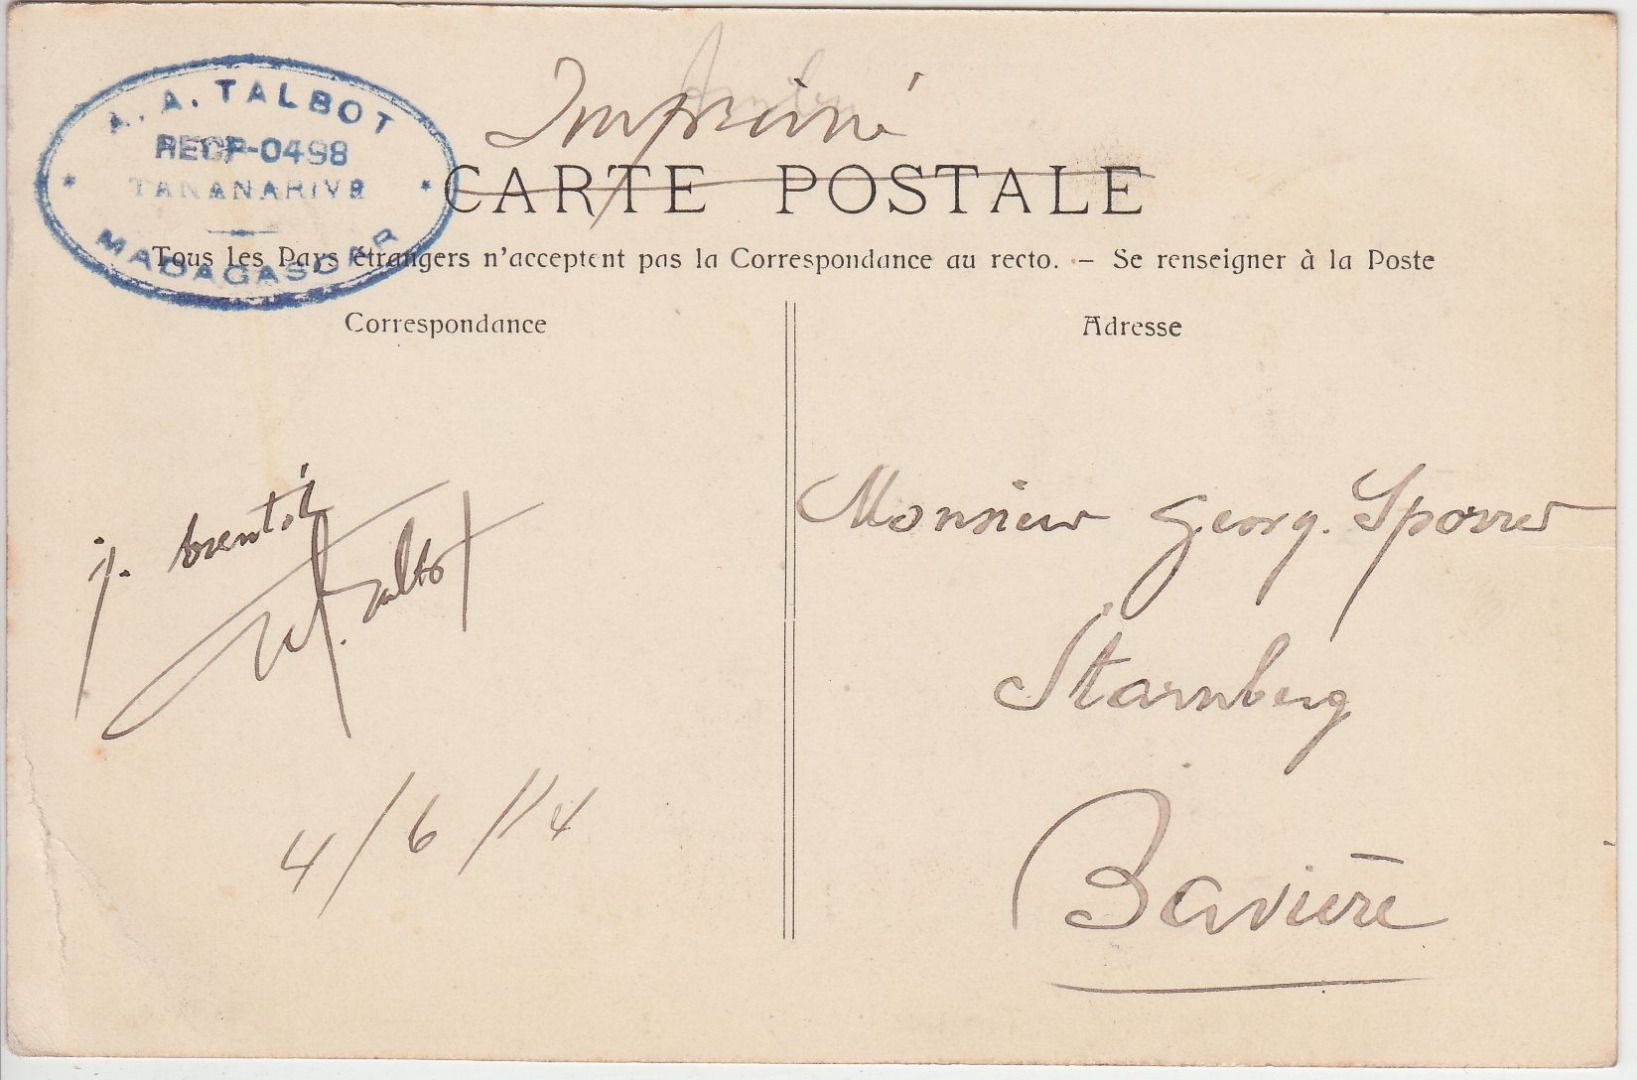 A. A. TALBOT
RECP-0498
TANANARIVE
MADAGASCAR
Imprimé
CARTE POSTALE
Tous les Pays étrangers n'acceptent pas la Correspondance au recto. — Se renseigner à la Poste
Correspondance
Adresse
Talbot
4/6/14
Monsieur Georg. Sporrer
Starnberg
Bavière